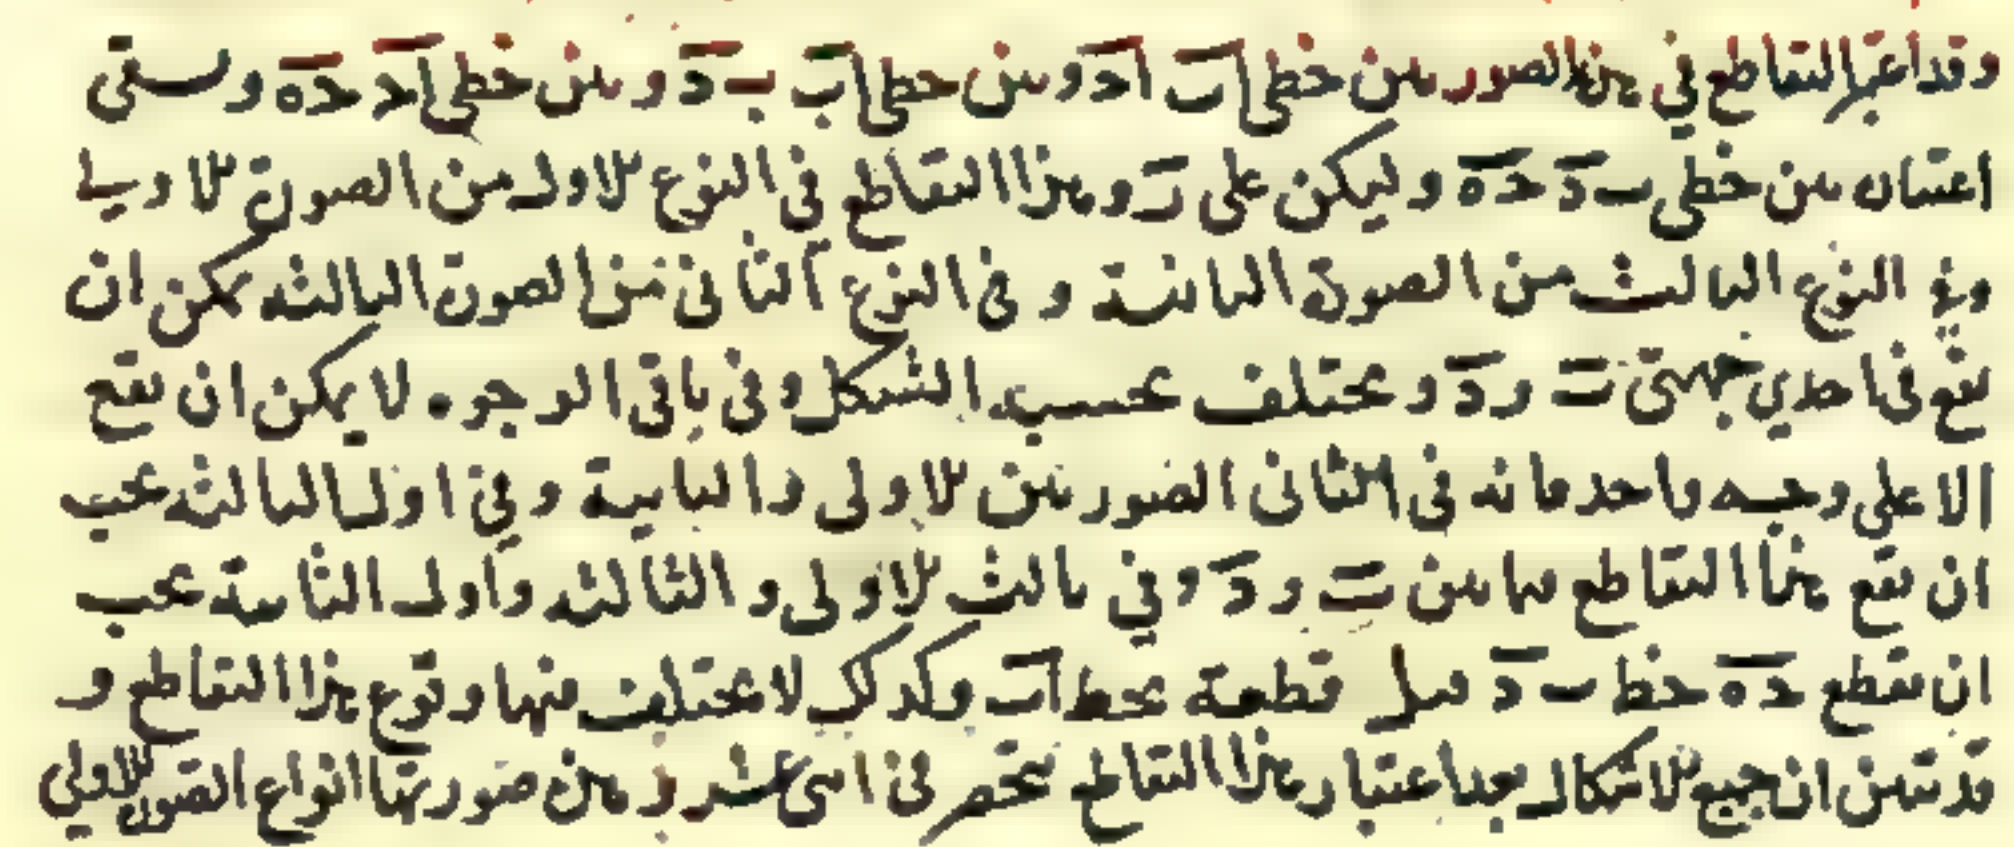 وقد اعتبر التقاطع في هذه الصور بين خطي اب اد وبين خطي اب ب د وبين خطي اد حه وستى
اعتبار بين خطي ب د حه وليكن على ر وهذا التقاطع في النوع الاول من الصورة الاولي
وفي النوع الثالث من الصورة الثانية وفي النوع الثاني من الصورة الثالثة يمكن ان
يقع في احدي جهتي ب و د ويختلف بحسبه الشكل وفي باقي الوجوه لا يمكن ان يقع
الا على وجه واحد فانه في الثاني الصورتين الاولى والثانية وفي اول الثالثة يجب
ان يقع هذا التقاطع فيما بين ب و د وفي ثالث الاولى والثالثة واول الثانية يجب
ان يقطع حه خط ب د قبل قطعه بخط اب وكذلك لا يختلف فيها وقوع هذا التقاطع و
قد تبين ان جميع الاشكال بعد اعتبار هذا التقاطع ينحصر في اثنى عشر وهذه صورتها انواع الصورة الاولي